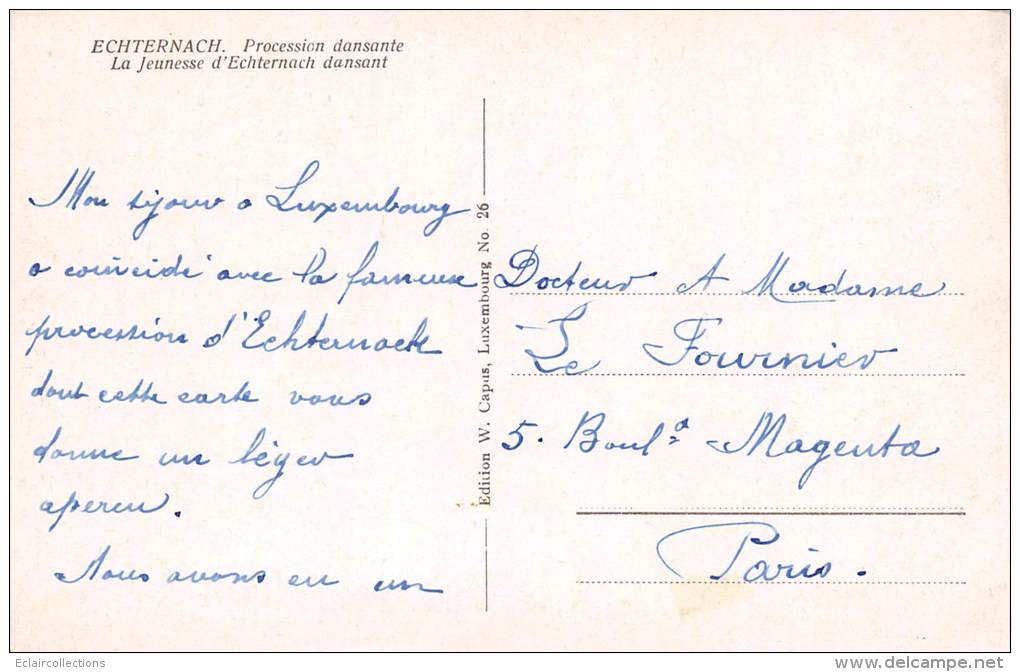 ECHTERNACH. Procession dansante
La Jeunesse d'Echternach dansant
Mon séjour a Luxembourg
a coincidé avec la fameuse
procession d'Echternach
dont cette carte vous
donne un léger
apercu.
Nous avons eu un
Edition W. Capus, Luxembourg No. 26
Docteur et Madame
Le Fournier
5. Boul.d Magenta
Paris.
Eclaircollections
www.delcampe.net